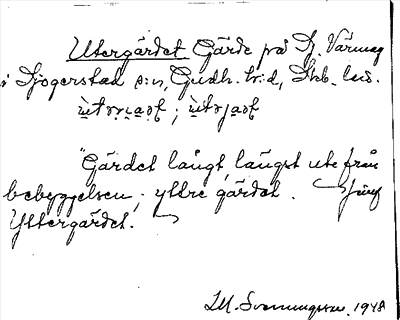 Utergärdet Gärde på Dj. Värmeg
i Sjögerstad s:n, Gudh. h:d, Skb. län.

"Gärdet långt, längst ute från
bebyggelsen; yttre gärdet. Jämf
Yttergärdet.
I.M. Svenningsson. 1948